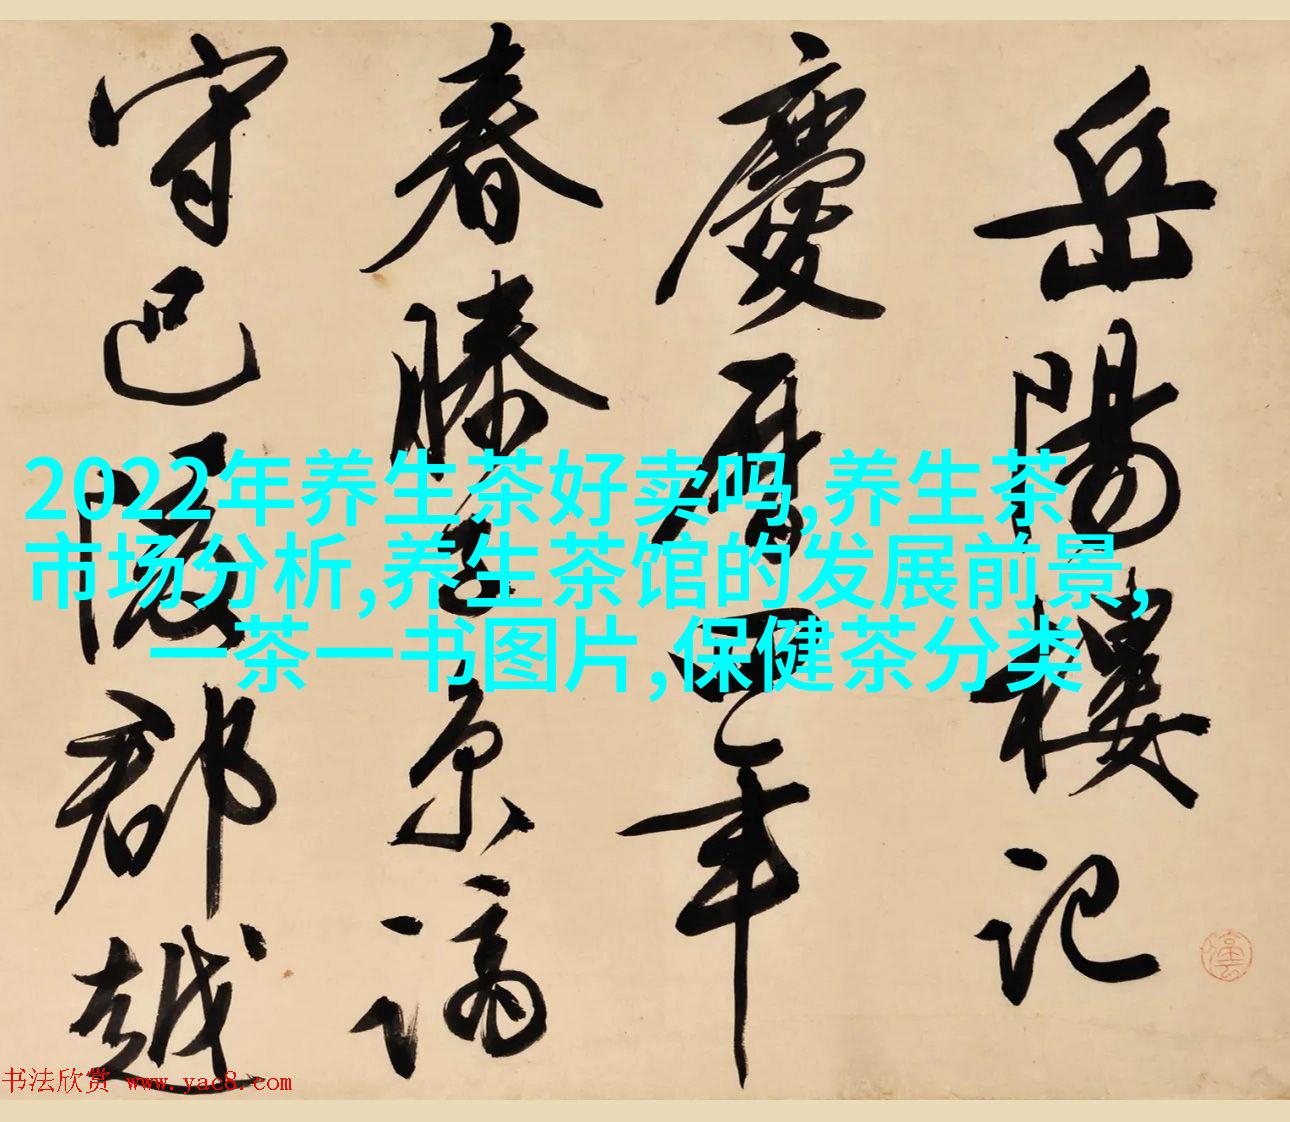 岳陽樓記
慶曆四年
春滕子京謫
守巴陵郡越
2022年养生茶好卖吗,养生茶
市场分析,养生茶馆的发展前景,
一茶一书图片,保健茶分类
书法欣赏 www.yac8.com